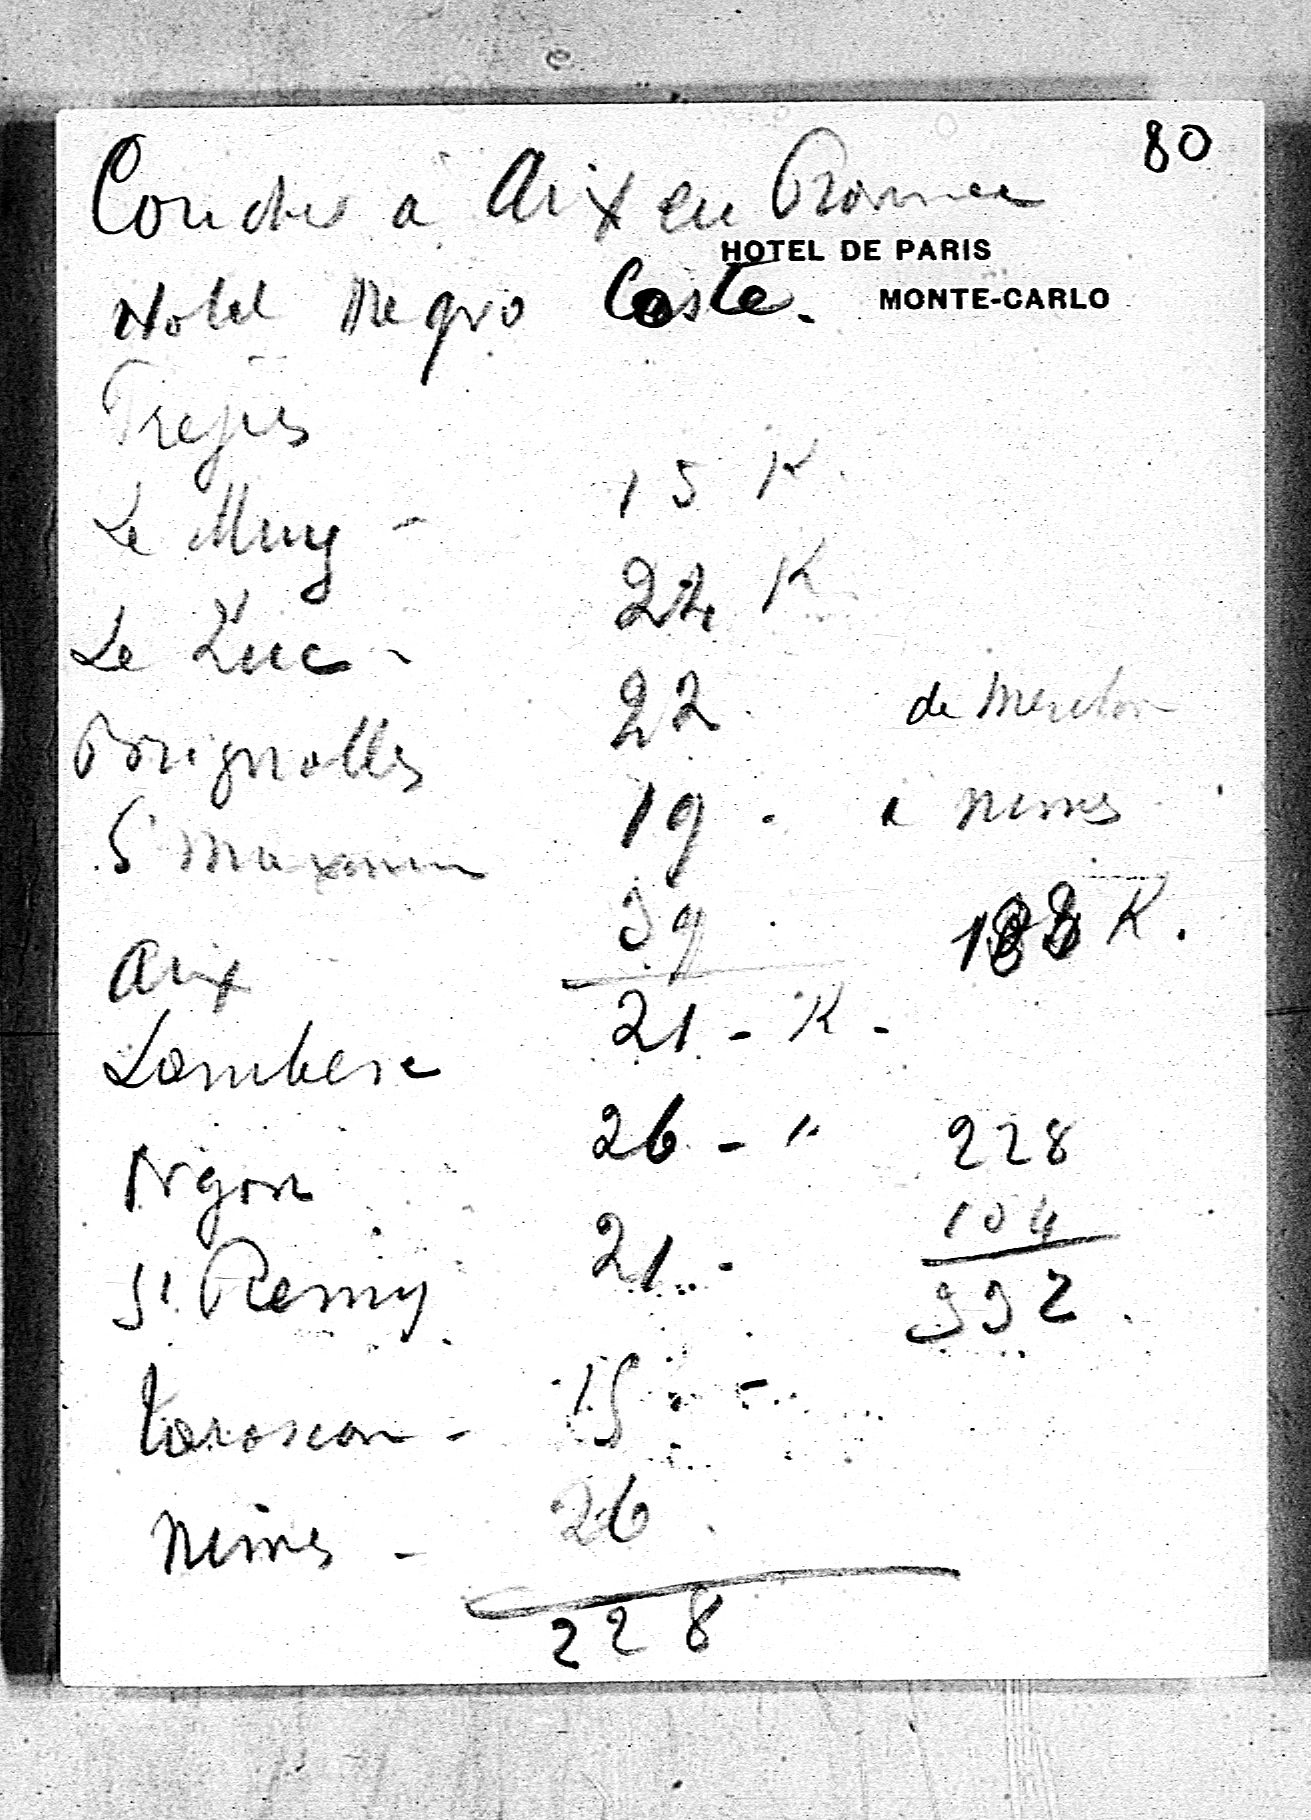 80
Coucher à Aix en Provence
HOTEL DE PARIS
MONTE-CARLO
Hotel Negro Coste.
Frejus
Le Muy - 15 K.
Le Luc - 24 K
Brignolles 22 de Menton
St Maximin 19 - à Nimes
Aix 39 K.
Lambesc 21 - K -
Orgon 26 - " 228
St. Remy 21 - 104
332
Tarascon - 15 -
Nimes - 26
228